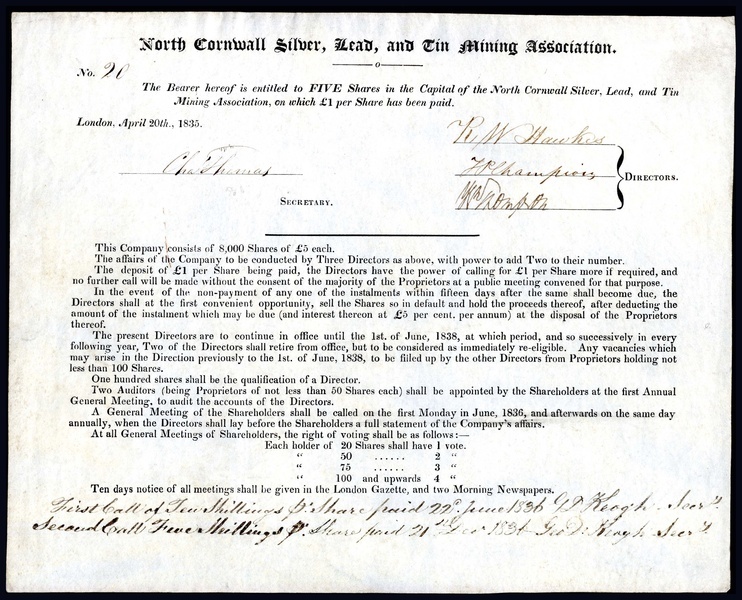 North Cornwall Silver, Lead, and Tin Mining Association.
No. 20
The Bearer hereof is entitled to FIVE Shares in the Capital of the North Cornwall Silver, Lead, and Tin
Mining Association, on which £1 per Share has been paid.
London, April 20th., 1835.
R W Hawkes
Chas Thomas
H Champion
DIRECTORS.
SECRETARY.
This Company consists of 8,000 Shares of £5 each.
The affairs of the Company to be conducted by Three Directors as above, with power to add Two to their number.
The deposit of £1 per Share being paid, the Directors have the power of calling for £1 per Share more if required, and
no further call will be made without the consent of the majority of the Proprietors at a public meeting convened for that purpose.
In the event of the non-payment of any one of the instalments within fifteen days after the same shall become due, the
Directors shall at the first convenient opportunity, sell the Shares so in default and hold the proceeds thereof, after deducting the
amount of the instalment which may be due (and interest thereon at £5 per cent. per annum) at the disposal of the Proprietors
thereof.
The present Directors are to continue in office until the 1st. of June, 1838, at which period, and so successively in every
following year, Two of the Directors shall retire from office, but to be considered as immediately re-eligible. Any vacancies which
may arise in the Direction previously to the 1st. of June, 1838, to be filled up by the other Directors from Proprietors holding not
less than 100 Shares.
One hundred shares shall be the qualification of a Director.
Two Auditors (being Proprietors of not less than 50 Shares each) shall be appointed by the Shareholders at the first Annual
General Meeting, to audit the accounts of the Directors.
A General Meeting of the Shareholders shall be called on the first Monday in June, 1836, and afterwards on the same day
annually, when the Directors shall lay before the Shareholders a full statement of the Company's affairs.
At all General Meetings of Shareholders, the right of voting shall be as follows:—
Each holder of 20 Shares shall have 1 vote.
“ 50 ...... 2 “
“ 75 ...... 3 “
“ 100 and upwards 4 “
Ten days notice of all meetings shall be given in the London Gazette, and two Morning Newspapers.
First Call of Ten Shillings pr Share paid 22d. June 1836 G D Keogh Secry.
Second Call Five Shillings pr Share paid 21st Dec 1836 Geo D Keogh Secry.